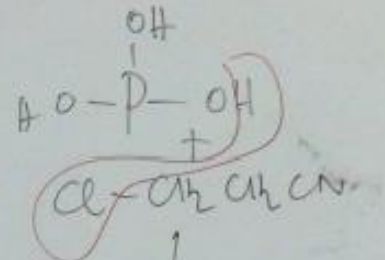 OH
HO-P-OH
+
Cl-CH2 CH2 CN